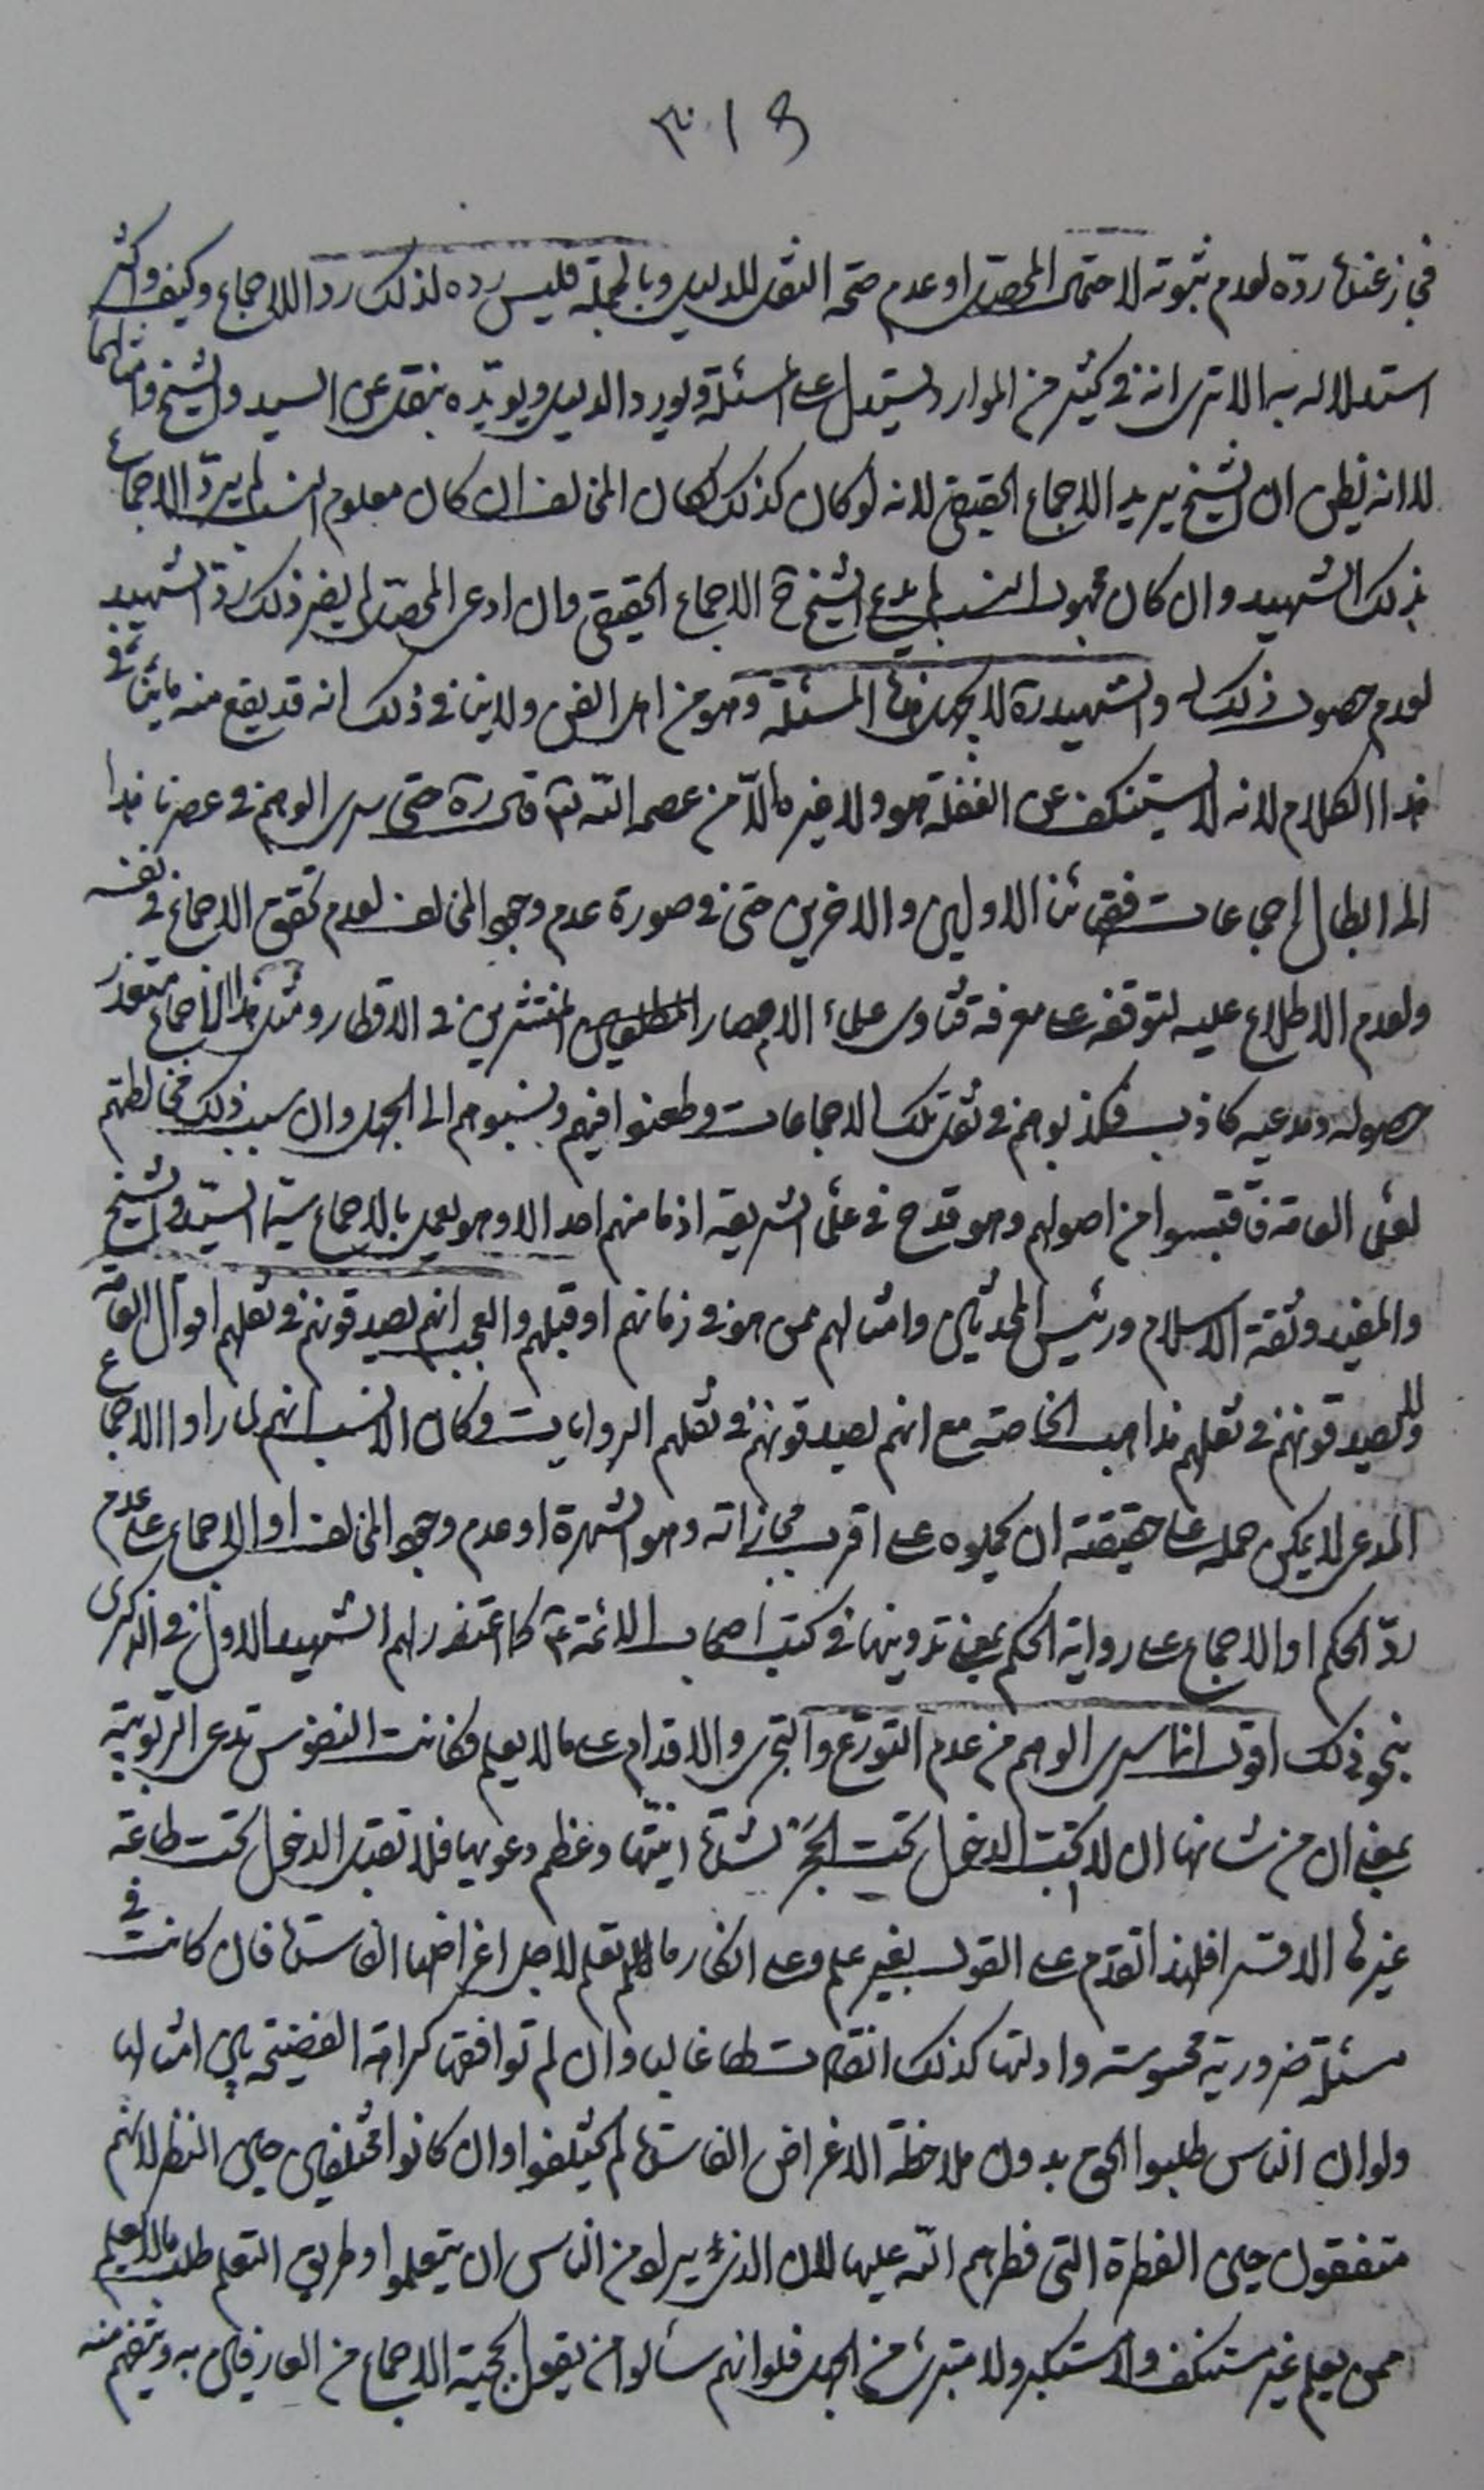 ٣١٩
فجاز عنده ردّه لعدم ثبوته لاحتمال المحصل او عدم صحة النقل للدليل وبالجملة فليس رده لذلك ردا للاجماع وكيف واكثر
استدلاله به الا ترى انه في كثير من الموارد يستدل على المسئلة ويورد الدليل ويؤيّده بنقل عن السيد والشيخ وامثالهما
لا انه يظن ان الشيخ يريد الاجماع الحقيقي لانه لو كان كذلك لكان المخالف ان كان معلوم النسب لم يردّ الاجماع
بذلك الشهيد وان كان مجهول النسب لم يدع الشيخ ح الاجماع الحقيقي وان ادعى المحصّل لم يضر ذلك ردّ الشهيد
لعدم حصول ذلك له والشهيد ره لا يجهل هذه المسئلة وهو من اهل الفن ولا ينافي ذلك انه قد يقع منه ما ينافي
هذا الكلام لانه لا يستنكف عن الغفلة هو ولا غيره الّا من عصمه الله حتى سرى الوهم في عصرنا هذا
الى ابطال اجماعات فقهائنا الاولين والاخرين حتى في صورة عدم وجود المخالف لعدم تحقق الاجماع في نفسه
ولعدم الاطلاع عليه لتوقفه على معرفة فتاوى علماء الامصار المنتشرين في الاقطار ومثل هذا الاجماع متعذر
حصوله ومدعيه كاذب فكذبوهم في نقل تلك الاجماعات وطعنوا فيهم ونسبوهم الى الجهل وان سبب ذلك مخالطتهم
لعلماء العامة فاقتبسوا من اصولهم وهو قدح في علماء الشريعة اذ ما منهم احد الا وهو يعمل بالاجماع سيّما السيّد والشيخ
والمفيد وثقة الاسلام ورئيس المحدثين وامثالهم ممن هو في زمانهم او قبلهم والعجب انهم يصدقونهم في نقلهم اقوال العامة
ولا يصدقونهم في نقلهم مذاهب الخاصة مع انهم يصدقونهم في نقلهم الروايات وكان الانسب انهم لما راوا الاجماع
المدعى لا يمكن حمله على حقيقته ان يحملوه على اقرب مجازاته وهو الشهرة او عدم وجود المخالف او الاجماع على عدم
ردّ الحكم او الاجماع على رواية الحكم بمعنى تدوينها في كتب اصحاب الائمة ع كما اعتذر لهم الشهيد الاول في الذكرى
بنحو ذلك اقول انما سرى الوهم من عدم التورّع والتجرى والاقدام على ما لا يعلم فكانت النفوس تدعى الربوبية
بمعنى ان من شانها ان لا تحب الدخول تحت الحجر لشدة انيّتها وعظم دعويها فلا تقبل الدخول تحت طاعة
غيرها الا قسرا فلهذا تقدم على القول بغير علم وعلى انكار ما لم تعلم لاجل اغراضها الفاسدة فان كانت في
مسئلة ضرورية محسوسة وادلتها كذلك انقادت لها غالبا وان لم توافقها كراهة الفضيحة بين امثالها
ولو ان الناس طلبوا الحق بدون ملاحظة الاغراض الفاسدة لم يختلفوا وان كانوا مختلفين حين النظر لانهم
متفقون حين الفطرة التي فطرهم الله عليها لان الذي يراد من الناس ان يتعلموا وطريق التعلم طلب ما لا يعلم
ممن يعلم غير مستنكف ولا مستكبر ولا متبرئ من الجهل فلو انهم سألوا من يقول بحجية الاجماع من العارفين به وبتفهم منه